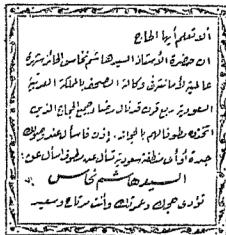 ألا تعلم أيها الحاج
ان حضرة الأستاذ السيد هاشم نحاس الحائز شهرة
عالمية لأمانته في وكالة الصحف بالمملكة العربية
السعودية ربع قرن قد نال رضا جميع الحجاج الذين
اتخذوه مطوفا لهم بالمجان. إذن فاسأل عند وصولك
جدة أو أي منطقة سعودية تسأل عند مطوفك اسأل عن:
السيد هاشم نحاس
تؤدى حجك وعمرتك وأنت مرتاح وسعيد